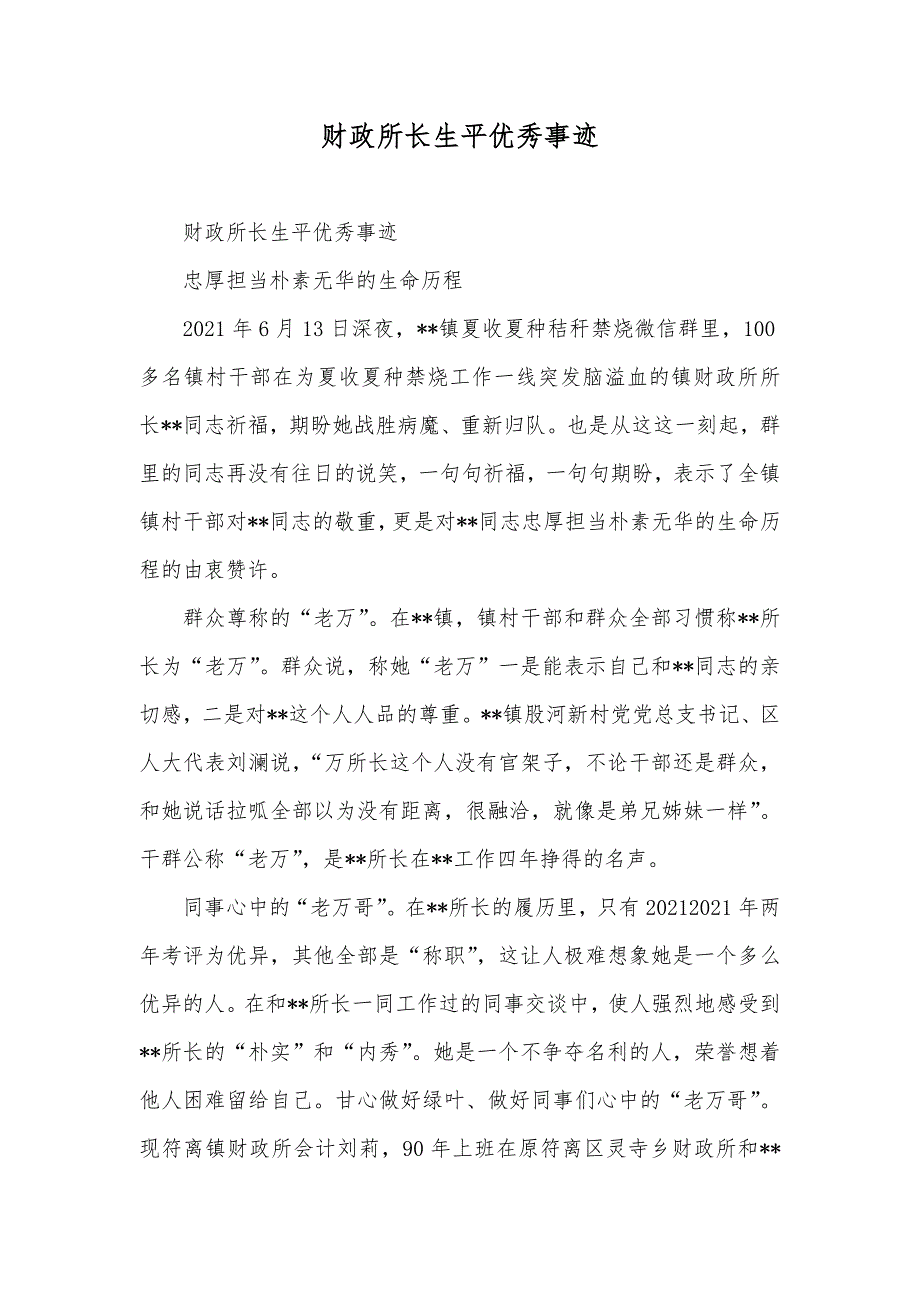 财政所长生平优秀事迹
财政所长生平优秀事迹
忠厚担当朴素无华的生命历程
2021 年 6 月 13 日深夜，**镇夏收夏种秸秆禁烧微信群里，100
多名镇村干部在为夏收夏种禁烧工作一线突发脑溢血的镇财政所所
长**同志祈福，期盼她战胜病魔、重新归队。也是从这这一刻起，群
里的同志再没有往日的说笑，一句句祈福，一句句期盼，表示了全镇
镇村干部对**同志的敬重，更是对**同志忠厚担当朴素无华的生命历
程的由衷赞许。
群众尊称的“老万”。在**镇，镇村干部和群众全部习惯称**所
长为“老万”。群众说，称她“老万”一是能表示自己和**同志的亲
切感，二是对**这个人人品的尊重。**镇股河新村党党总支书记、区
人大代表刘澜说，“万所长这个人没有官架子，不论干部还是群众，
和她说话拉呱全部以为没有距离，很融洽，就像是弟兄姊妹一样”。
干群公称“老万”，是**所长在**工作四年挣得的名声。
同事心中的“老万哥”。在**所长的履历里，只有 20212021 年两
年考评为优异，其他全部是“称职”，这让人极难想象她是一个多么
优异的人。在和**所长一同工作过的同事交谈中，使人强烈地感受到
**所长的“朴实”和“内秀”。她是一个不争夺名利的人，荣誉想着
他人困难留给自己。甘心做好绿叶、做好同事们心中的“老万哥”。
现符离镇财政所会计刘莉，90 年上班在原符离区灵寺乡财政所和**